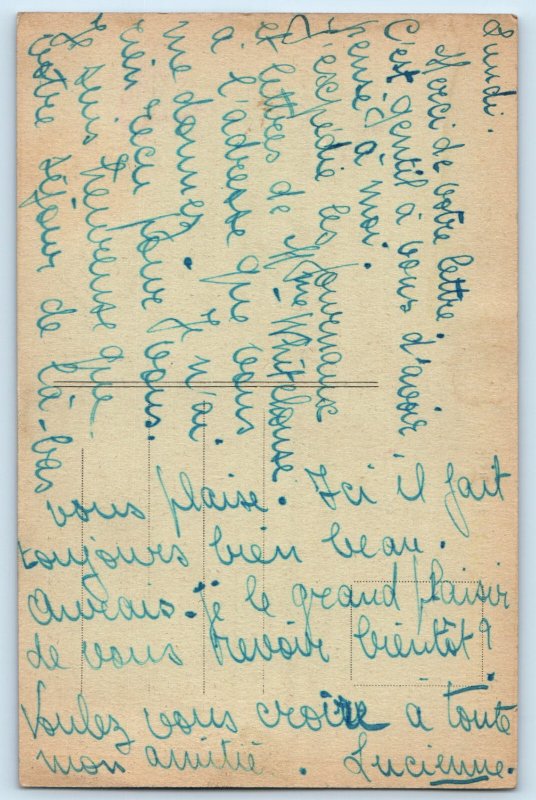 Lundi.
Merci de votre lettre.
C'est gentil à vous d'avoir
pensé à moi.
J'expédie les journaux
et lettres de Mme
à l'adresse que vous
me donnez. Je n'ai
rien reçu pour vous.
Je suis heureuse que
votre séjour de là-bas
vous plaise. Ici il fait
toujours bien beau.
Aurais-je le grand plaisir
de vous revoir bientôt?
Voulez vous croire à toute
mon amitié. Lucienne.